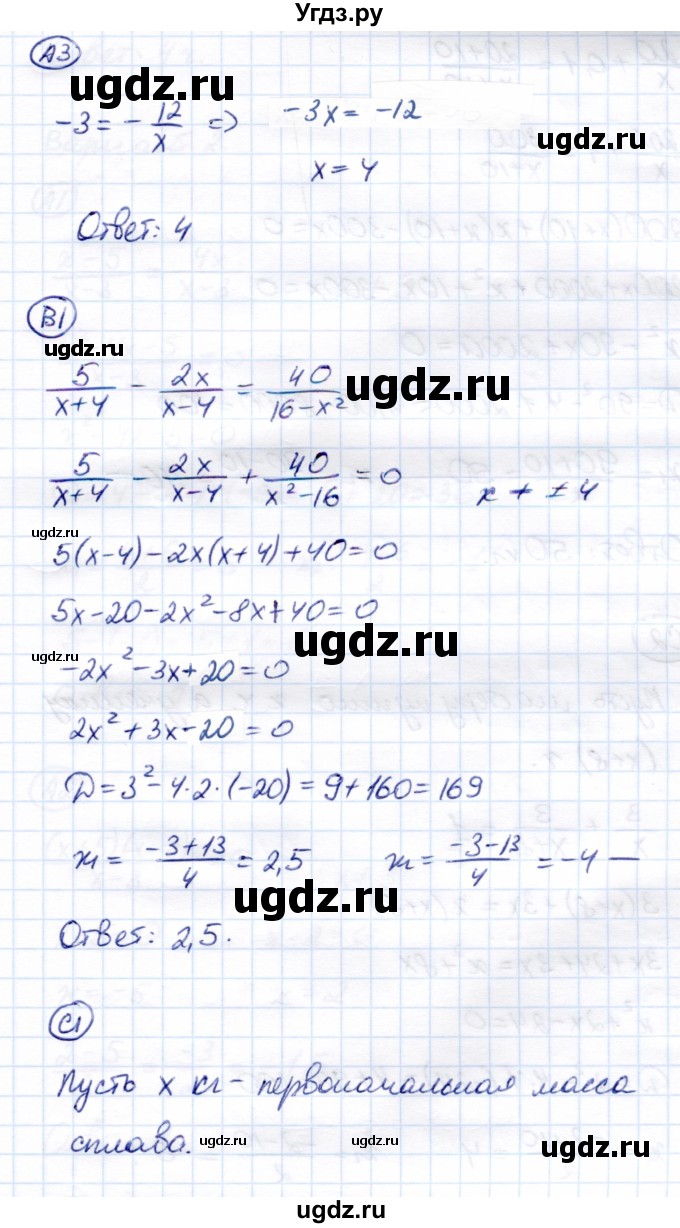 Угдз.ру
А3
ugdz.ru
-3 = - 12/x => -3x = -12
ugdz.ru
x = 4
Ответ: 4
В1
ugdz.ru
5/(x+4) - 2x/(x-4) = 40/(16-x²)
ugdz.ru
5/(x+4) - 2x/(x-4) + 40/(x²-16) = 0 x ≠ ±4
ugdz.ru
5(x-4)-2x(x+4)+40=0
5x-20-2x²-8x+40=0
ugdz.ru
ugdz.ru
-2x²-3x+20=0
2x²+3x-20=0
D=3²-4·2·(-20)=9+160=169
x₁ = (-3+13)/4 = 2,5 x₁ = (-3-13)/4 = -4 —
ugdz.ru
Ответ: 2,5.
С1
Пусть x кг - первоначальная масса
сплава.
ugdz.ru ugdz.ru ugdz.ru
ugdz.ru